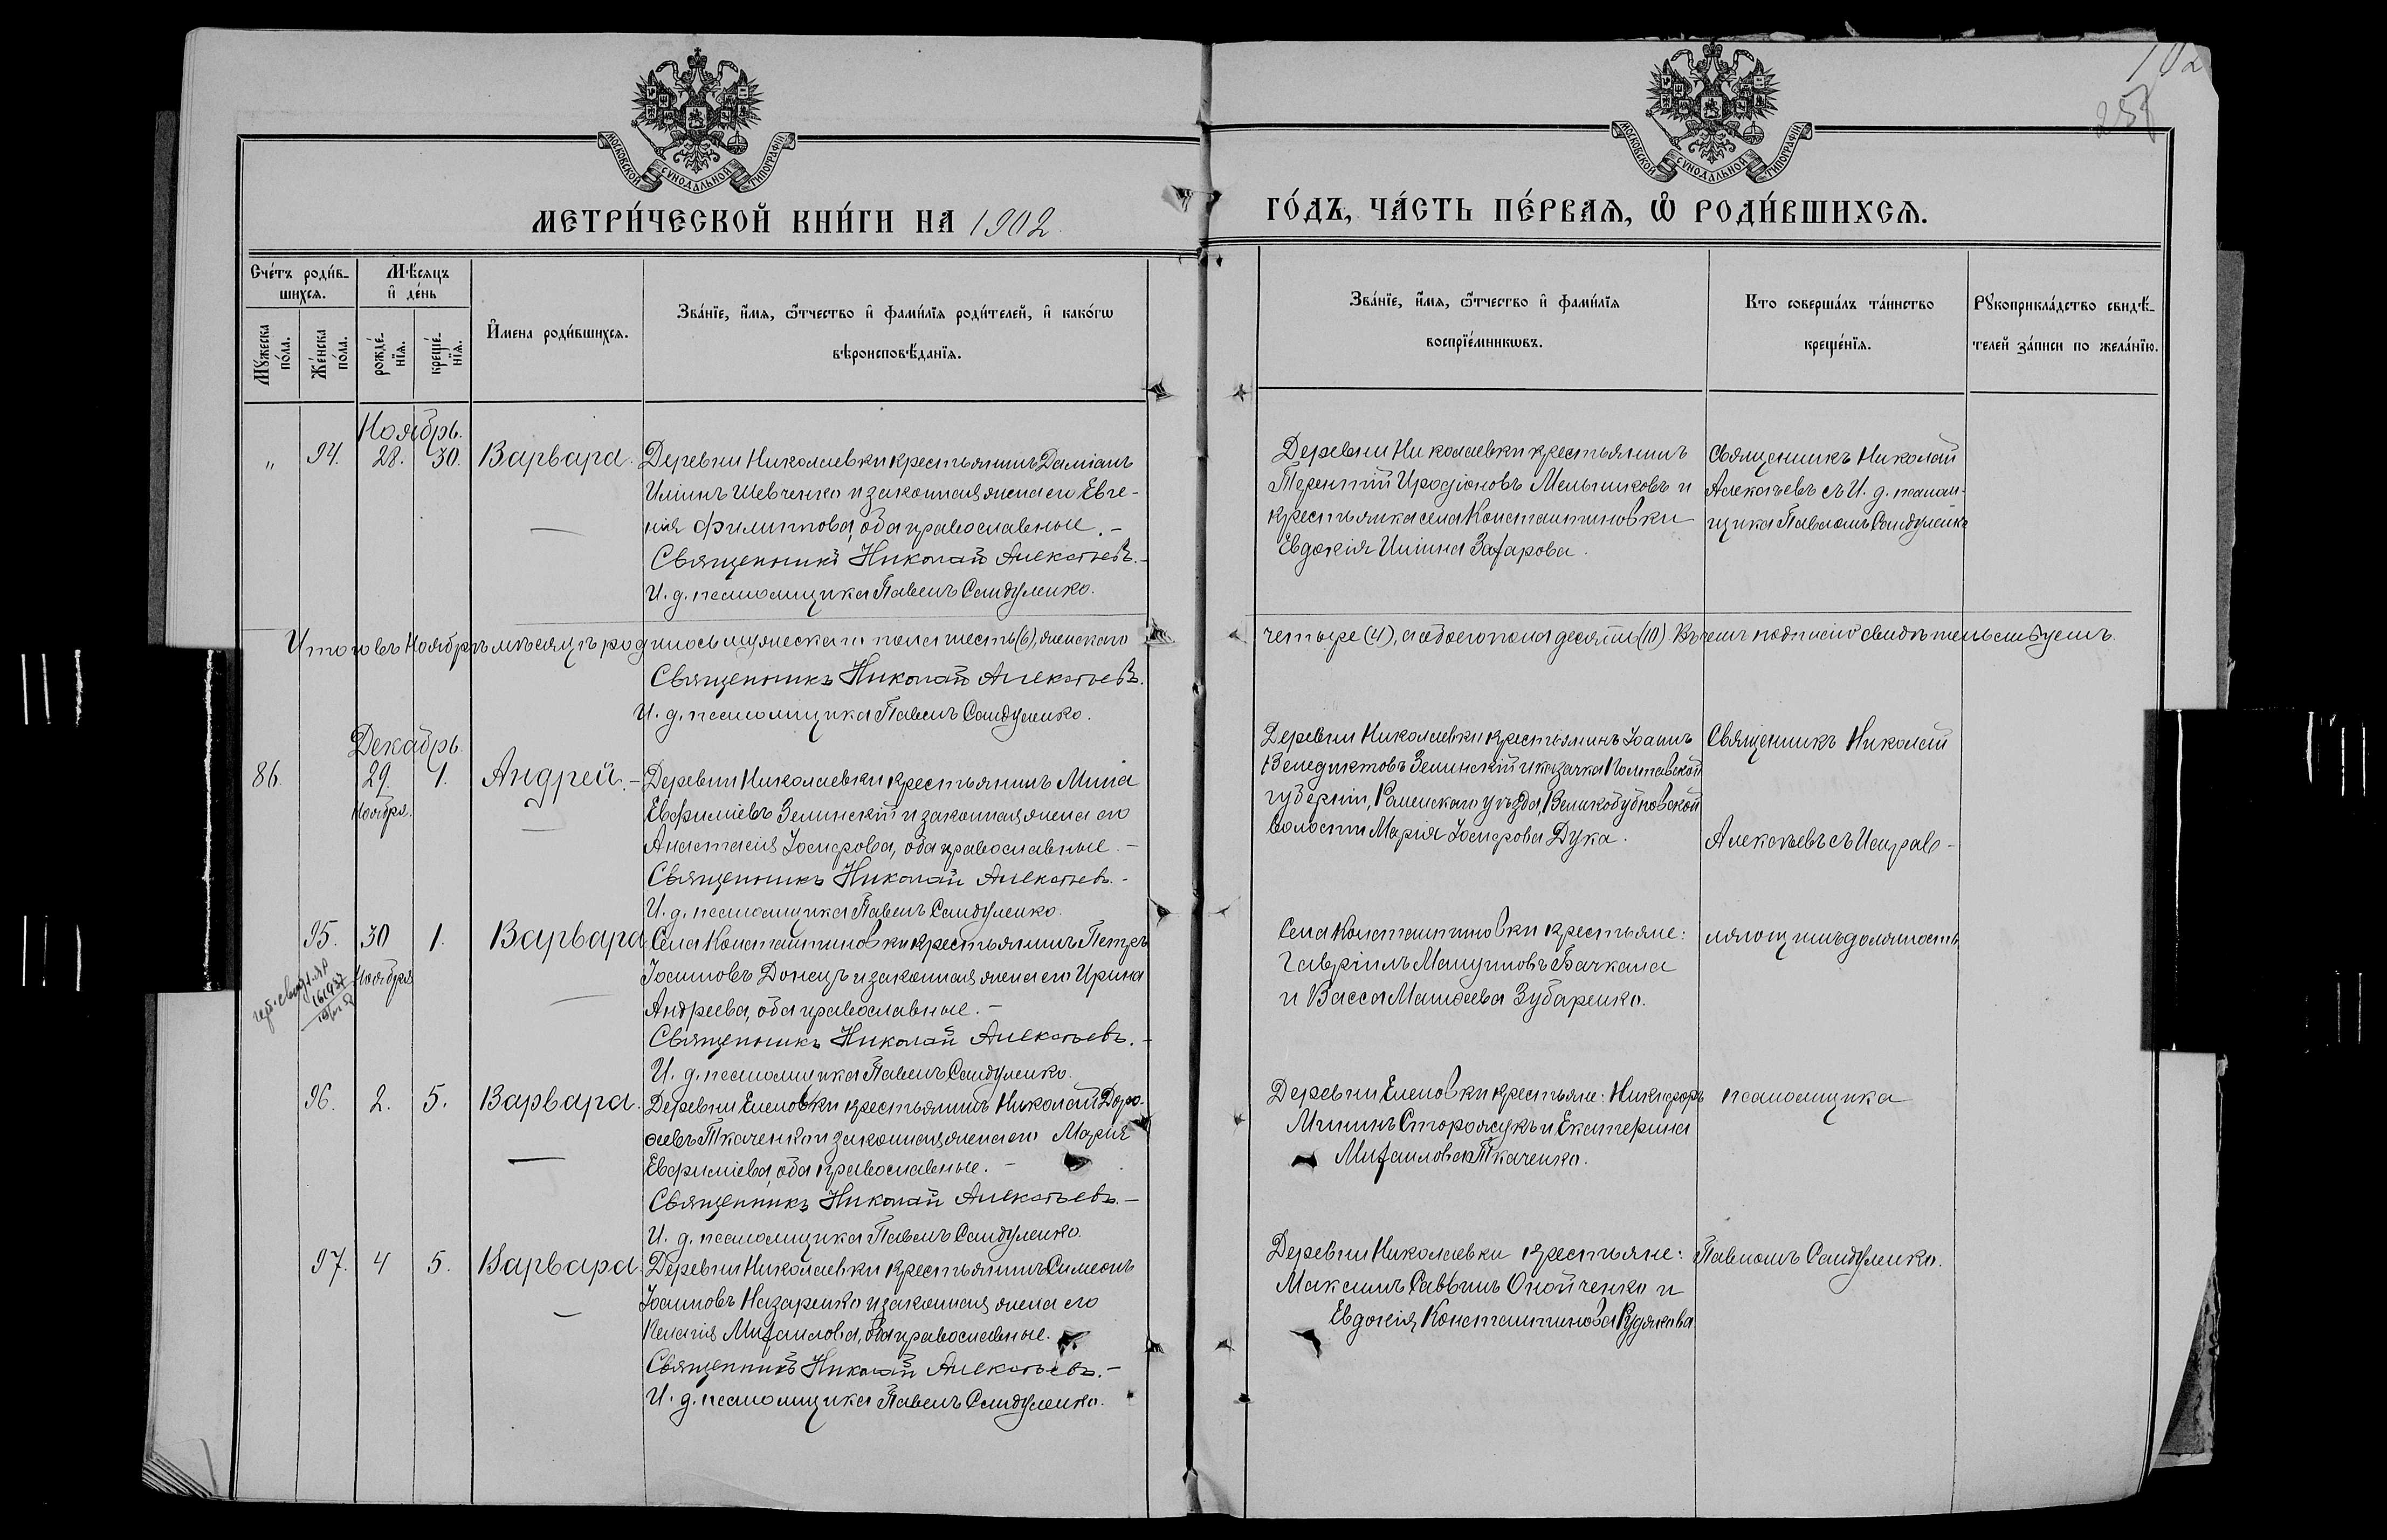 102
257
МОСКОВСКОЙ СѴНОДАЛЬНОЙ ТИПОГРАФІИ
МОСКОВСКОЙ СѴНОДАЛЬНОЙ ТИПОГРАФІИ
МЕТРИ́ЧЕСКОЙ КНИ́ГИ НА 1902
ГО́ДЪ, ЧА́СТЬ ПЕ́РВАѦ, Ѽ РОДИ́ВШИХСѦ.
Сче́тъ роди́вшихсѧ.
Мꙋ́жеска по́ла.
Же́нска по́ла.
Мѣ́сѧцъ и҆ де́нь
рожде́нїѧ.
креще́нїѧ.
И҆мена роди́вшихсѧ.
Зва́нїе, и҆́мѧ, ѻ҆́тчество и҆ фами́лїѧ роди́телей, и҆ како́гѡ
вѣроисповѣ́данїѧ.
Зва́нїе, и҆́мѧ, ѻ҆́тчество и҆ фами́лїѧ
воспрїе́мникѡвъ.
Кто соверша́лъ та́инство
креще́нїѧ.
Рꙋкоприкла́дство свидѣ́-
телей за́писи по жела́нїю.
Ноябрь.
" 94. 28. 30. Варвара.
Деревни Николаевки крестьянинъ Даміанъ
Иліинъ Шевченко и законная жена его Евге-
нія Филиппова, оба православные. -
Священникъ Николай Алексѣевъ. -
И. д. псаломщика Павелъ Сандуленко.
Деревни Николаевки крестьянинъ
Терентій Иродіоновъ Мельниковъ и
крестьянка села Константиновки
Евдокія Иліина Захарова.
Священникъ Николай
Алексѣевъ съ И. д. псалом-
щика Павломъ Сандуленко
Итого въ Ноябрѣ мѣсяцѣ родилось мужескаго пола шесть (6), женскаго
четыре (4), а обоего пола десять (10). Въ чемъ подписью свидѣтельствуемъ.
Священникъ Николай Алексѣевъ.
И. д. псаломщика Павелъ Сандуленко.
Декабрь
86. 29. Ноября. 1. Андрей. -
Деревни Николаевки крестьянинъ Мина
Евфиміевъ Зелинскій и законная жена его
Анастасія Іосифова, оба православные. -
Священникъ Николай Алексѣевъ. -
И. д. псаломщика Павелъ Сандуленко.
Деревни Николаевки крестьянинъ Іоаннъ
Венедиктовъ Зелинскій и казачка Полтавской
губерніи, Роменскаго уѣзда, Великобубновской
волости Марія Іосифова Дука.
Священникъ Николай
Алексѣевъ съ Исправ-
95. 30 Ноября 1. Варвара
161937
Села Константиновки крестьянинъ Петръ
Іоанновъ Донецъ и законная жена его Ирина
Андреева, оба православные. -
Священникъ Николай Алексѣевъ. -
И. д. псаломщика Павелъ Сандуленко.
Села Константиновки крестьяне:
Гавріилъ Бачкала
и Васса Матѳеева Зубаренко.
ляющимъ должность
96. 2. 5. Варвара.
Деревни Еленовки крестьянинъ Николай Доро-
ѳеевъ Ткаченко и законная жена его Марія
Евфиміева, оба православные. -
Священникъ Николай Алексѣевъ. -
И. д. псаломщика Павелъ Сандуленко.
Деревни Еленовки крестьяне: Никифоръ
Мининъ Сторожукъ и Екатерина
Михаилова Ткаченко.
псаломщика
97. 4 5. Варвара.
Деревни Николаевки крестьянинъ Симеонъ
Іоанновъ Назаренко и законная жена его
Пелагія Михаилова, оба православные.
Священникъ Николай Алексѣевъ. -
И. д. псаломщика Павелъ Сандуленко.
Деревни Николаевки крестьяне:
Максимъ Саввинъ Онойченко и
Евдокія Константинова Рудякова
Павломъ Сандуленко.